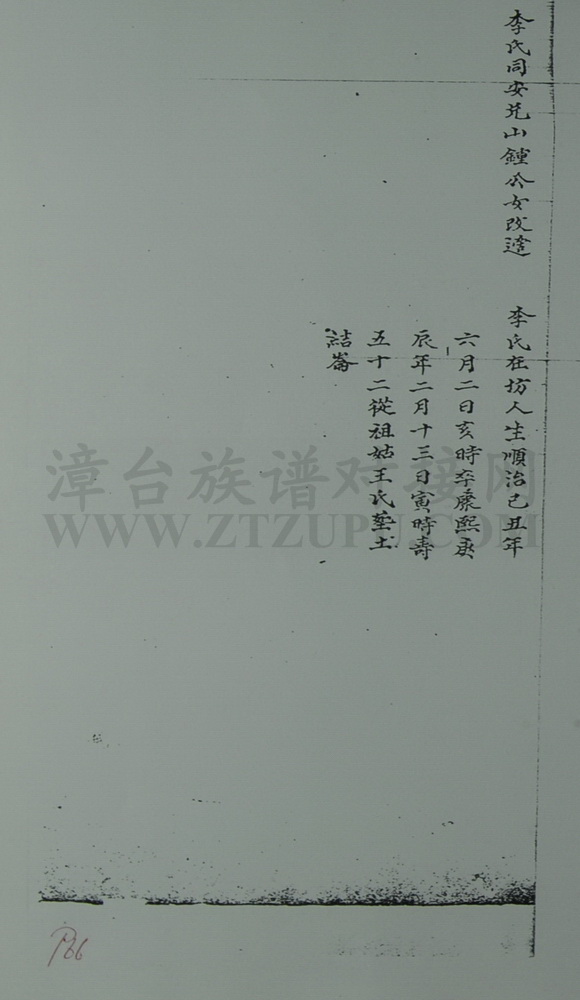 李氏同安兑山鍾公女改適
李氏在坊人生順治己丑年
六月二日亥時卒康熙庚
辰年二月十三日寅時壽
五十二從祖姑王氏塟土
結崙
漳台族谱对接网
WWW.ZTZUPU.COM
P66